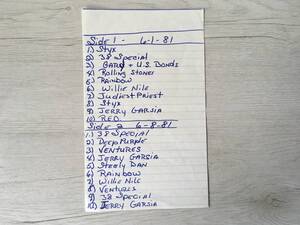 Side 1 - 6-1-81
1) Styx
2) 38 Special
3) GARY + U.S. Bonds
4) Rolling Stones
5) Rainbow
6) Willie Nile
7) Judiest Priest
8) Styx
9) Jerry Garsia
10) R.E.O.
Side 2 6-8-81
1) 38 Special
2) Deep Purple
3) VENTURES
4) Jerry GARSIA
5) Steely Dan
6) Rainbow
7) Willie Nile
8) Ventures
9) 38 Special
10) Jerry Garsia